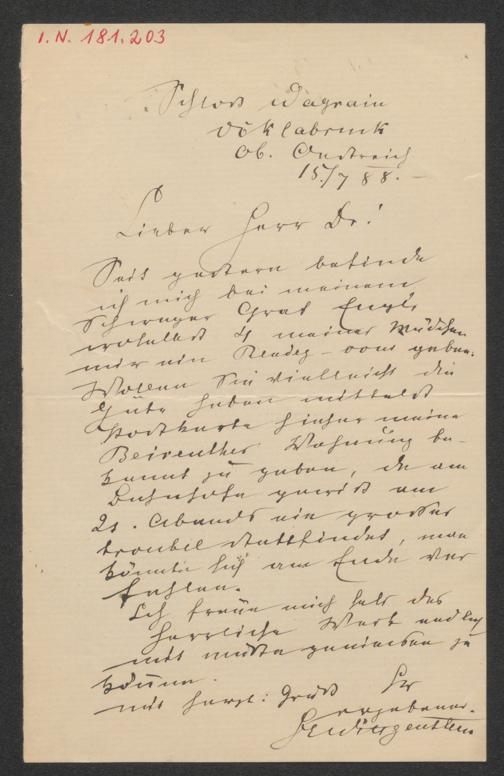 I.N. 181.203
Schloß Wagrain
Vöklabruck
Ob. Oestreich
15/7 88.
Lieber Herr Dr!
Seit gestern befinde
ich mich bei meinem
Schwager Graf Engl,
woselbst 4 meiner Mädchen
mir ein Rendez-vous geben.
Wollen Sie vielleicht die
Güte haben mittelst
Postkarte hieher meine
Beireuther Wohnung be-
kannt zu geben, da am
Bahnhofe gewiß am
21. Abends ein großer
troubel stattfindet, man
könnte sich am Ende ver
fehlen.
Ich freue mich sehr das
herrliche Werk endlich
mit genießen zu
können.
mit herzl: Gruß Ihr
ergebener